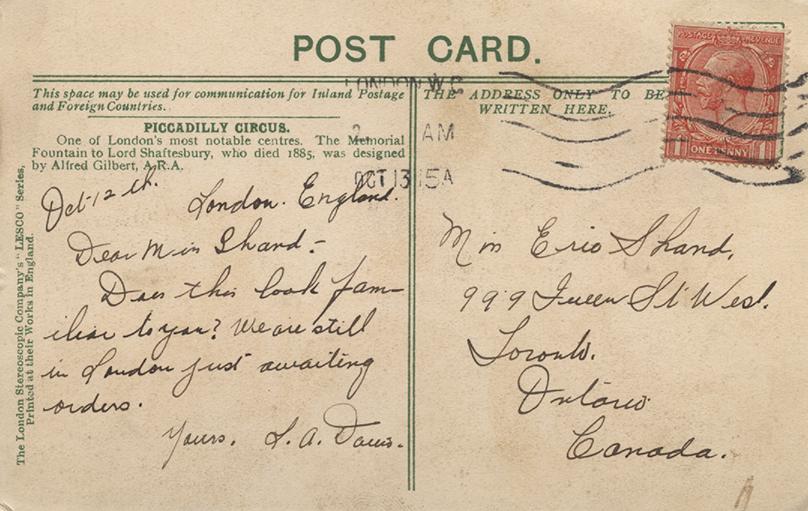 POST CARD.
This space may be used for communication for Inland Postage
and Foreign Countries.
THE ADDRESS ONLY TO BE
WRITTEN HERE.
PICCADILLY CIRCUS.
One of London's most notable centres. The Memorial
Fountain to Lord Shaftesbury, who died 1885, was designed
by Alfred Gilbert, A.R.A.
Oct-12th. London. England.
Dear Miss Shand:-
Does this look fam-
iliar to you? We are still
in London just awaiting
orders.
Yours.
The London Stereoscopic Company's "LESCO" Series,
Printed at their Works in England.
LONDON.W.C
AM
OCT 13 15A
POSTAGE REVENUE
1 ONE PENNY 1
Miss Shand,
999 Queen St West.
Toronto.
Ontario
Canada.